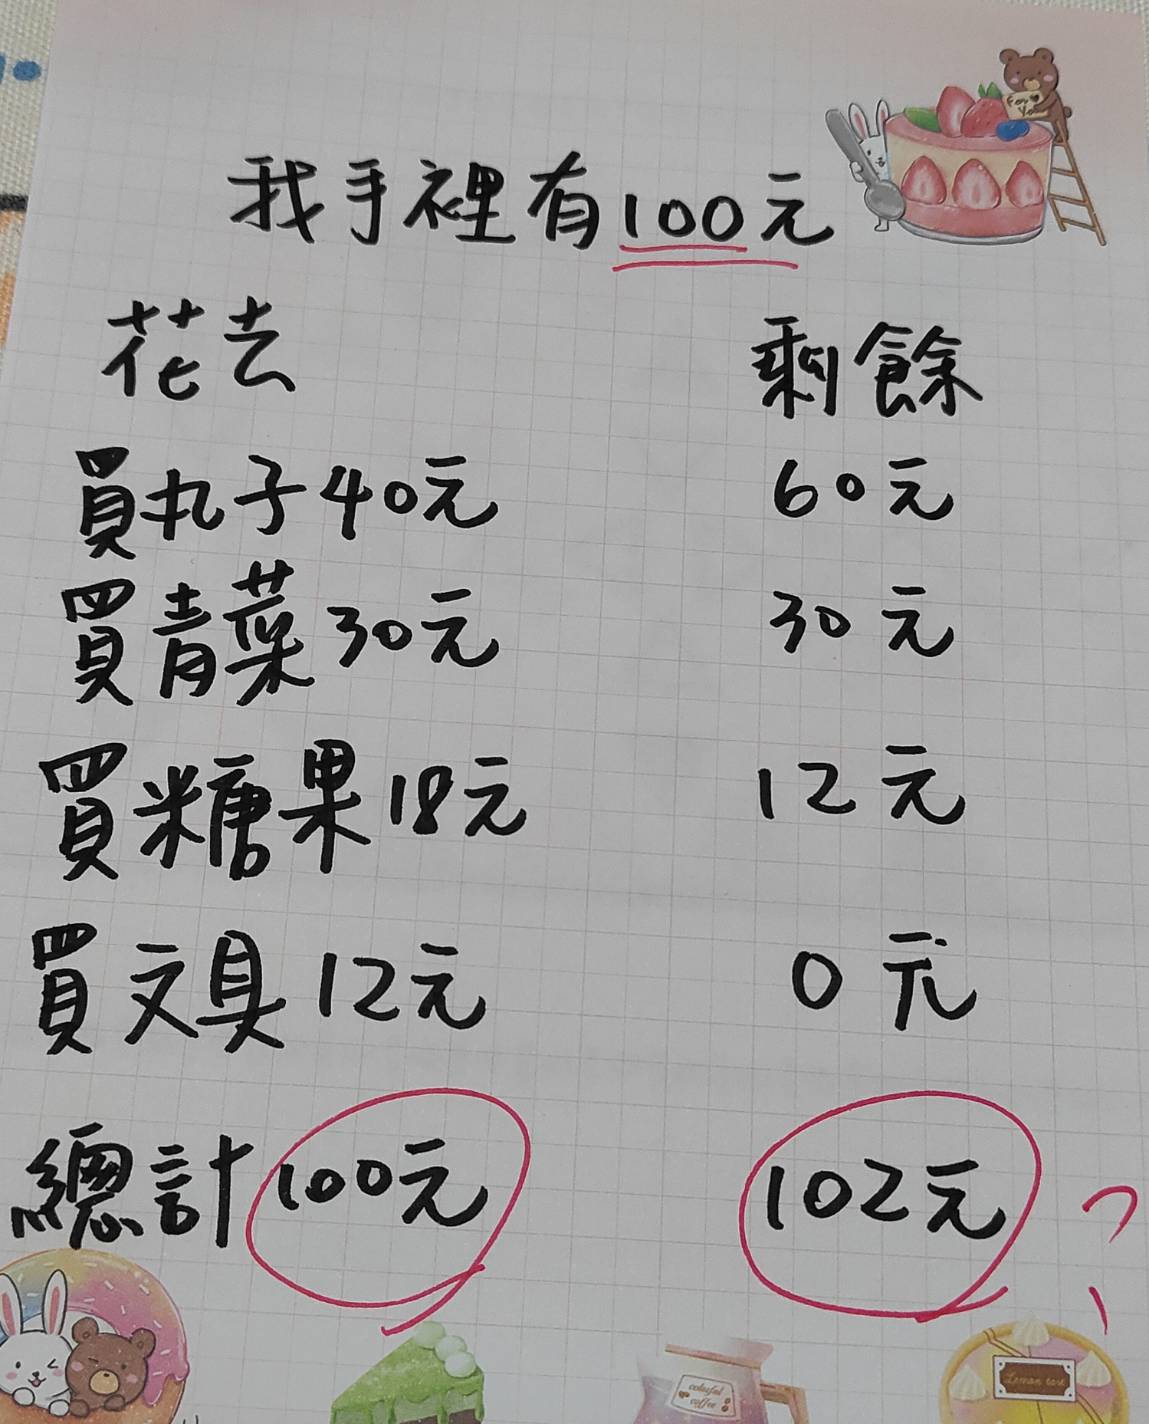 For You
我手裡有100元
花去 剩餘
買丸子40元 60元
買青菜30元 30元
買糖果18元 12元
買文具12元 0元
總計100元 102元?
colorful
coffee
Lemon tart